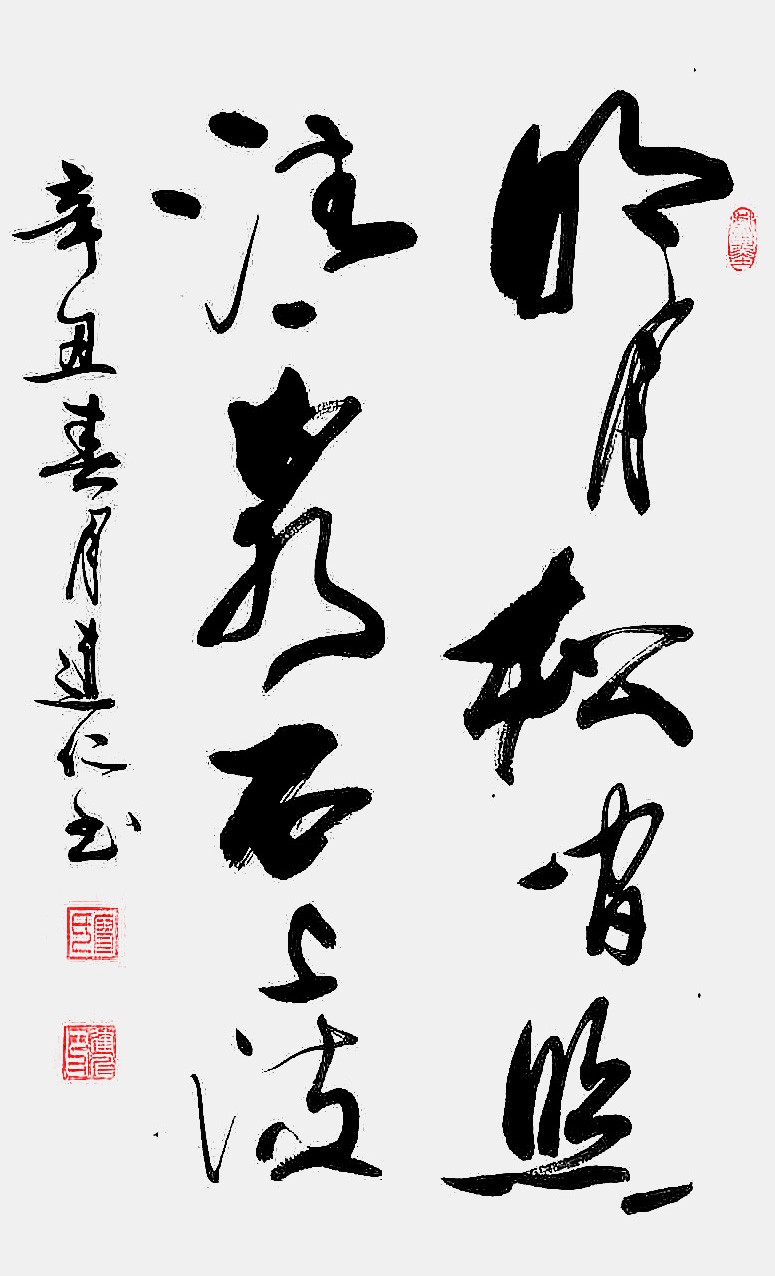 明月松间照
清泉石上流
辛丑春月道仁书